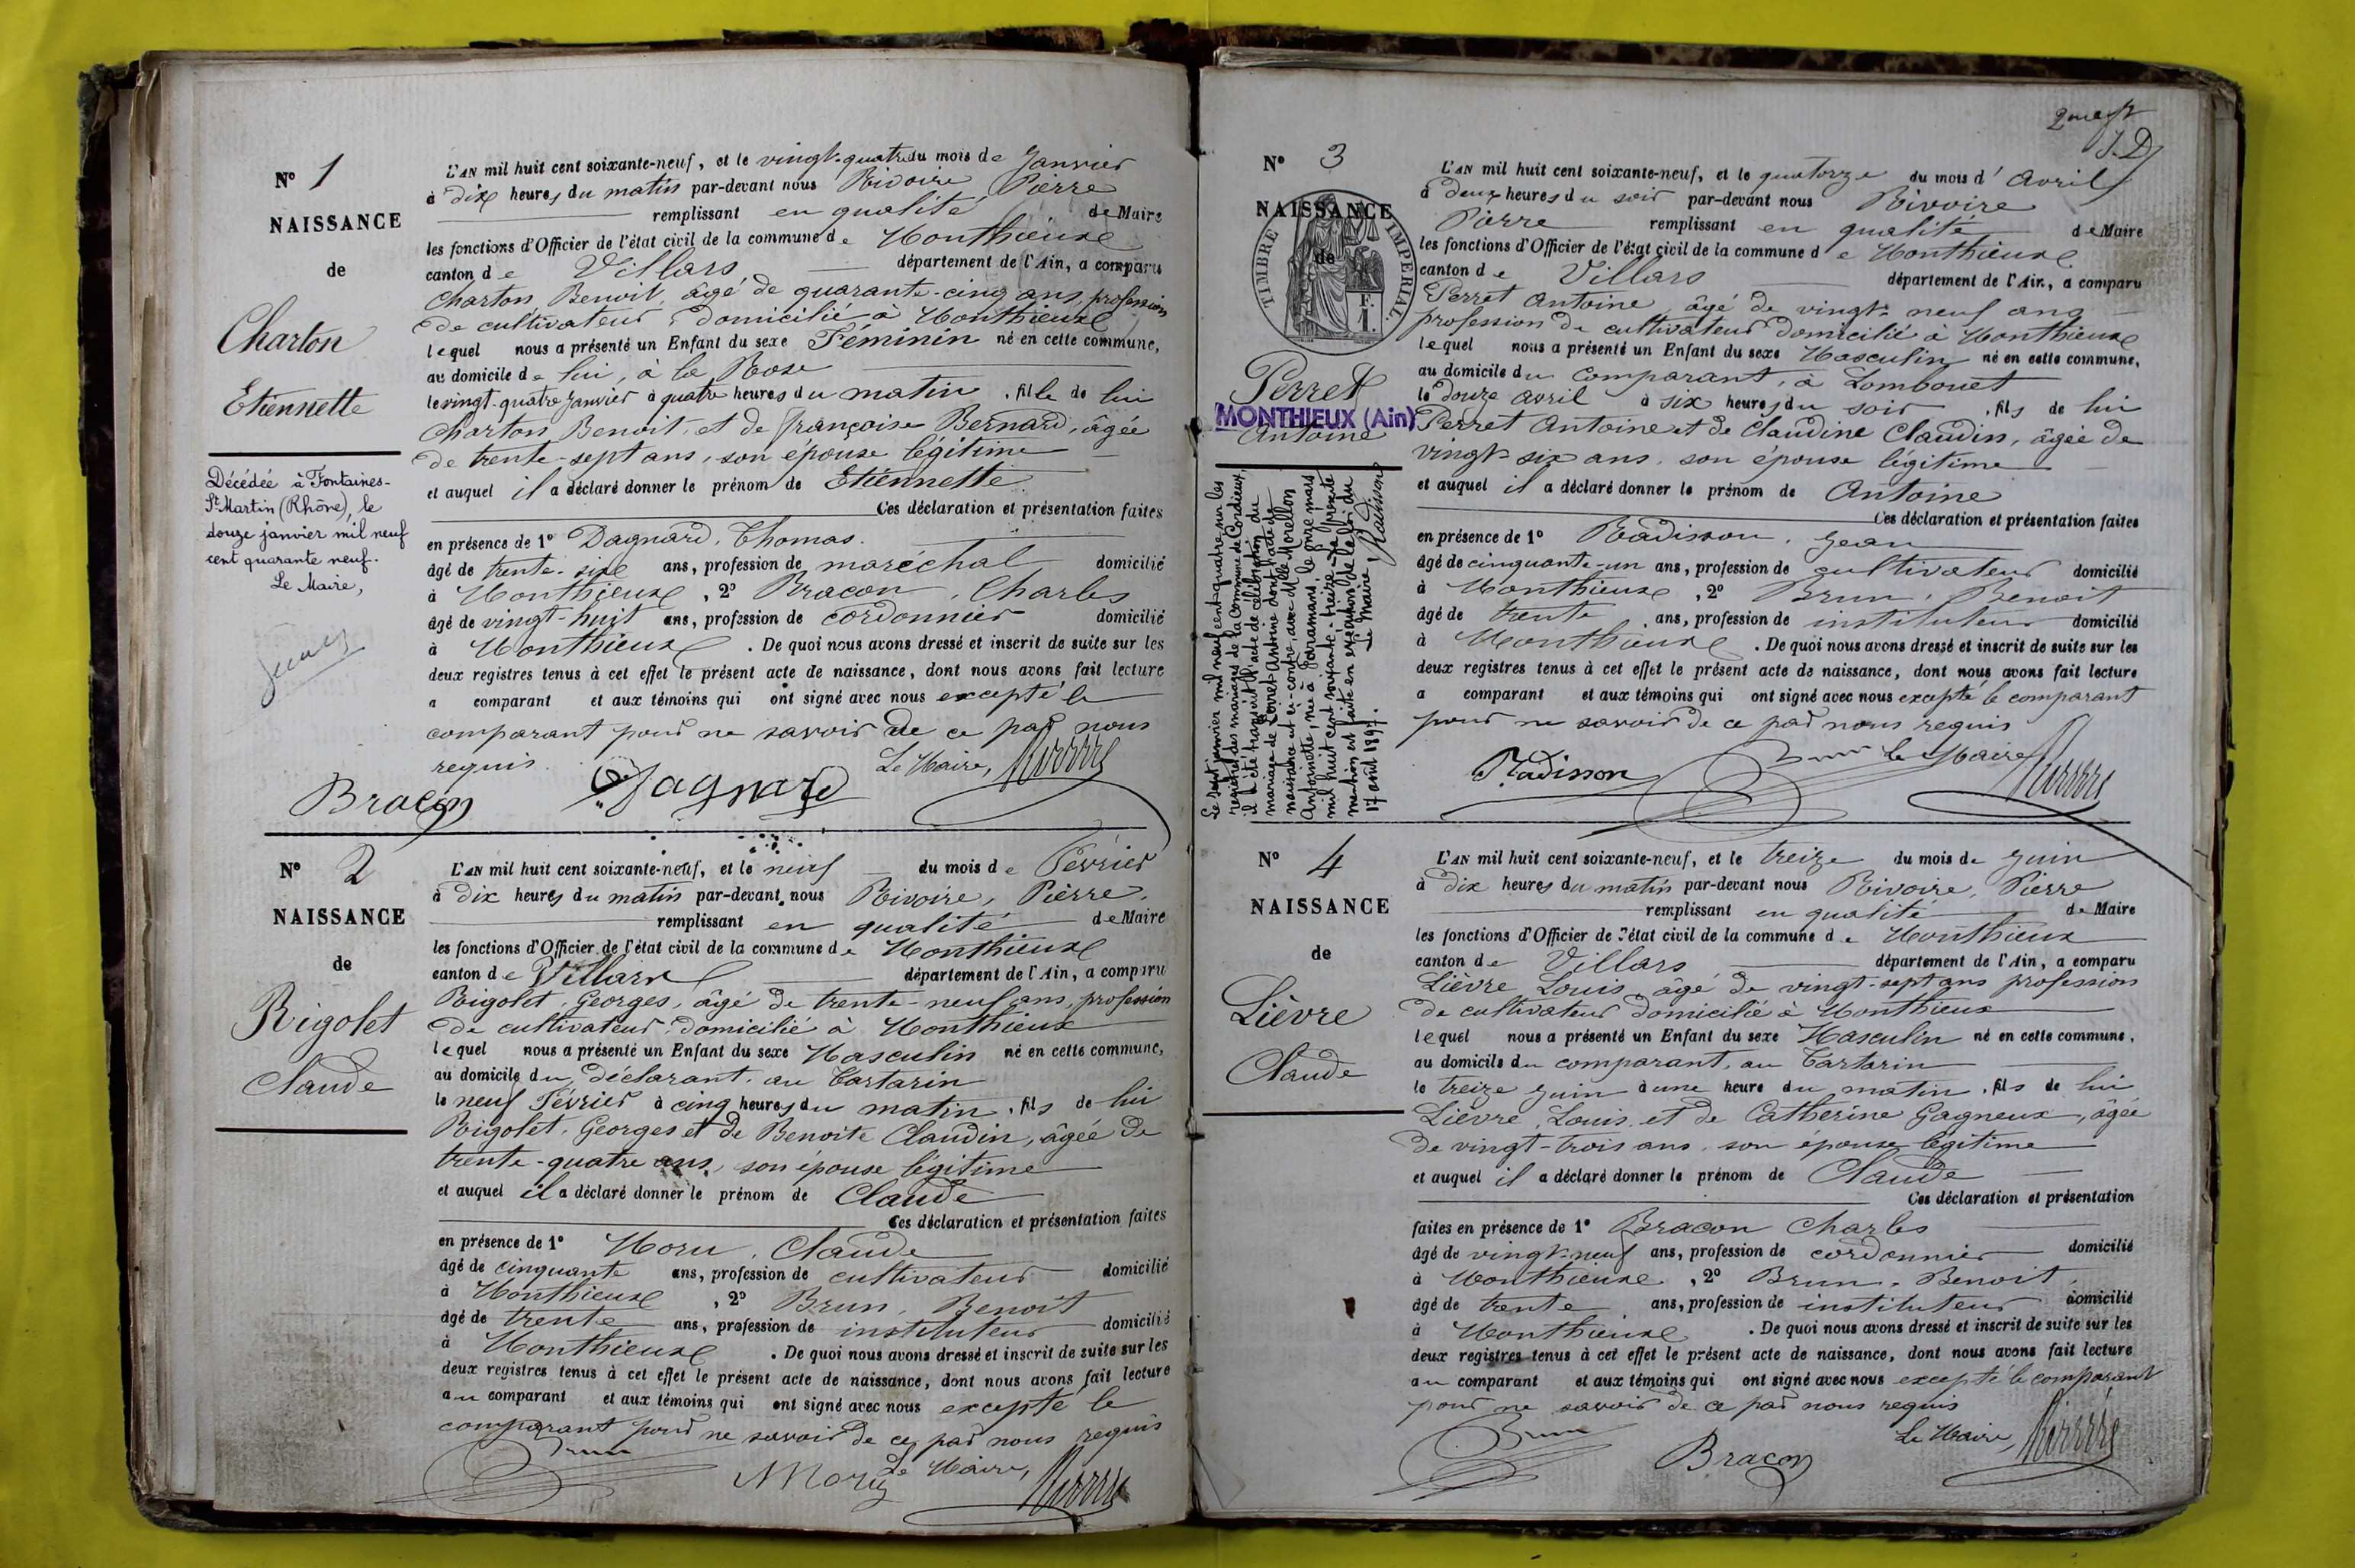 N° 1
NAISSANCE
de
Charton
Etiennette
Décédée à Fontaines-
St Martin (Rhône), le
douze janvier mil neuf
cent quarante neuf.
Le Maire,
L'AN mil huit cent soixante-neuf, et le vingt-quatre du mois de Janvier
à dix heures du matin par-devant nous Rivoire Pierre
remplissant en qualité de Maire
les fonctions d'Officier de l'état civil de la commune de Monthieux
canton de Villars département de l'Ain, a comparu
Charton, Benoit, âgé de quarante-cinq ans, profession
de cultivateur, domicilié à Monthieux
lequel nous a présenté un Enfant du sexe Féminin né en cette commune,
au domicile de lui, à la Rose
le vingt-quatre Janvier à quatre heures du matin, fille de lui
Charton, Benoit, et de Françoise Bernard, âgée
de trente-sept ans, son épouse légitime
et auquel il a déclaré donner le prénom de Etiennette.
Ces déclaration et présentation faites
en présence de 1° Dagnard, Thomas.
âgé de trente-six ans, profession de maréchal domicilié
à Monthieux, 2° Bracon, Charles
âgé de vingt-huit ans, profession de cordonnier domicilié
à Monthieux. De quoi nous avons dressé et inscrit de suite sur les
deux registres tenus à cet effet le présent acte de naissance, dont nous avons fait lecture
a comparant et aux témoins qui ont signé avec nous excepté le
comparant pour ne savoir de ce par nous
requis.
Le Maire, Rivoire
Bracon Dagnard
N° 2
NAISSANCE
de
Rigolet
Claude
L'AN mil huit cent soixante-neuf, et le neuf du mois de Février
à dix heures du matin par-devant nous Rivoire, Pierre,
remplissant en qualité de Maire
les fonctions d'Officier de l'état civil de la commune de Monthieux
canton de Villars département de l'Ain, a comparu
Rigolet, Georges, âgé de trente-neuf ans, profession
de cultivateur, domicilié à Monthieux
lequel nous a présenté un Enfant du sexe Masculin né en cette commune,
au domicile du déclarant, au Tartarin
le neuf Février à cinq heures du matin, fils de lui
Rigolet, Georges et de Benoite Claudin, âgée de
trente-quatre ans, son épouse légitime
et auquel il a déclaré donner le prénom de Claude
Ces déclaration et présentation faites
en présence de 1° Moru, Claude
âgé de cinquante ans, profession de cultivateur domicilié
à Monthieux, 2° Brun, Benoit
âgé de trente ans, profession de instituteur domicilié
à Monthieux. De quoi nous avons dressé et inscrit de suite sur les
deux registres tenus à cet effet le présent acte de naissance, dont nous avons fait lecture
au comparant et aux témoins qui ont signé avec nous excepté le
comparant pour ne savoir de ce par nous requis
Brun
Le Maire,
Moru Rivoire
N° 3
NAISSANCE
de
TIMBRE IMPERIAL.
F.
1.
Perret
MONTHIEUX (Ain)
Antoine
Le sept janvier mil neuf cent quatre sur les
registres des mariages de la Commune de Cordieux,
il a été transcrit l'acte de célébration du
mariage de Perret Antoine dont l'acte de
naissance est ci-contre, avec Mlle Morellon
Antoinette, née à Joramans, le onze mars
mil huit cent soixante-treize. La présente
mention est faite en exécution de la loi du
17 août 1897. Le Maire, Radisson
L'AN mil huit cent soixante-neuf, et le quatorze du mois d'Avril
à deux heures du soir par-devant nous Rivoire
Pierre remplissant en qualité de Maire
les fonctions d'Officier de l'état civil de la commune de Monthieux
canton de Villars département de l'Ain, a comparu
Perret Antoine, âgé de vingt-neuf ans
profession de cultivateur domicilié à Monthieux
lequel nous a présenté un Enfant du sexe Masculin né en cette commune,
au domicile du comparant, à Lombouet
le douze avril à six heures du soir, fils de lui
Perret Antoine et de Claudine Claudin, âgée de
vingt-six ans, son épouse légitime
et auquel il a déclaré donner le prénom de Antoine
Ces déclaration et présentation faites
en présence de 1° Radisson, Jean
âgé de cinquante-un ans, profession de cultivateur domicilié
à Monthieux, 2° Brun, Benoit
âgé de trente ans, profession de instituteur domicilié
à Monthieux. De quoi nous avons dressé et inscrit de suite sur les
deux registres tenus à cet effet le présent acte de naissance, dont nous avons fait lecture
a comparant et aux témoins qui ont signé avec nous excepté le comparant
pour ne savoir de ce par nous requis
Radisson Brun Le Maire Rivoire
N° 4
NAISSANCE
de
Lièvre
Claude
L'AN mil huit cent soixante-neuf, et le treize du mois de Juin
à dix heures du matin par-devant nous Rivoire, Pierre
remplissant en qualité de Maire
les fonctions d'Officier de l'état civil de la commune de Monthieux
canton de Villars département de l'Ain, a comparu
Lièvre Louis, âgé de vingt-sept ans profession
de cultivateur domicilié à Monthieux
lequel nous a présenté un Enfant du sexe Masculin né en cette commune,
au domicile du comparant, au Tartarin
le treize Juin à une heure du matin, fils de lui
Lièvre, Louis, et de Catherine Gagneux, âgée
de vingt-trois ans, son épouse légitime
et auquel il a déclaré donner le prénom de Claude
Ces déclaration et présentation
faites en présence de 1° Bracon Charles
âgé de vingt-neuf ans, profession de cordonnier domicilié
à Monthieux, 2° Brun, Benoit,
âgé de trente ans, profession de instituteur domicilié
à Monthieux. De quoi nous avons dressé et inscrit de suite sur les
deux registres tenus à cet effet le présent acte de naissance, dont nous avons fait lecture
au comparant et aux témoins qui ont signé avec nous excepté le comparant
pour ne savoir de ce par nous requis
Brun Bracon Le Maire, Rivoire